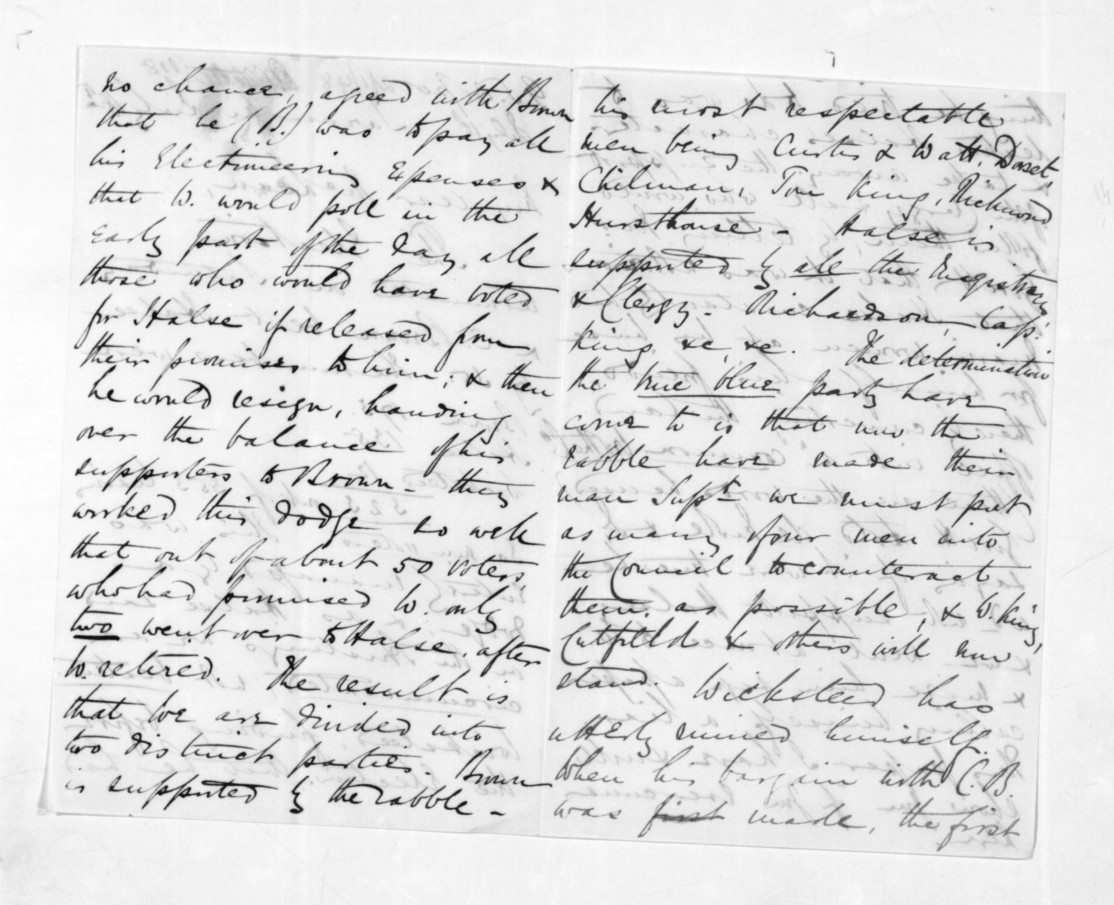 no chance, agreed with Brown
that he (B.) was to pay all
his Electioneering Expenses &
that W. would poll in the
early part of the day, all
those who would have voted
for Halse if released from
their promises to him; & then
he would resign, handing
over the balance of his
supporters to Brown - they
worked this dodge so well
that out of about 50 voters
who had promised W. only
two went over to Halse, after
W. retired. The result is
that we are divided into
two distinct parties. Brown
is supported by the rabble -
his most respectable
men being Curtis & Watt, Dorset,
Chilman, Tom King, Richmond
Hursthouse - Halse is
supported by all the Magistracy
& Clergy - Richardson, Capt.
King &c, &c. The determination
the true blue party have
come to is that now the
rabble have made their
man Supt we must put
as many of our men into
the Council to counteract
them, as possible, & W. King,
Cutfield & others will now
stand. Wicksteed has
utterly ruined himself.
When his bargain with C.B.
was first made, the first